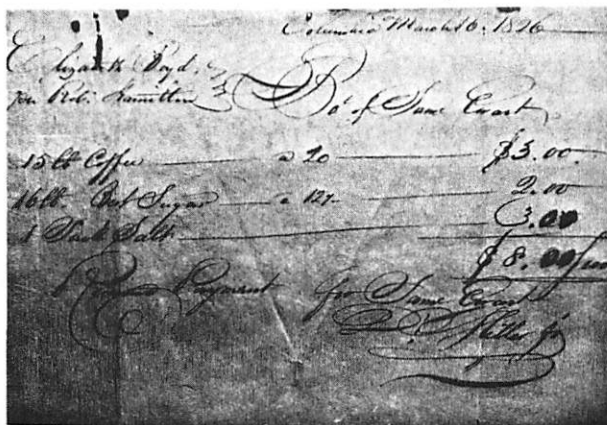 Columbia March 16. 1826
Elizabeth Boyd
per Robt. Hamilton Bot of Same Evart
15 lb Coffee a 20 $3.00.
16 lb. Sugar a 12½ 2.00
1 Sack Salt 3.00
$ 8.00/100
Payment for Same Evart